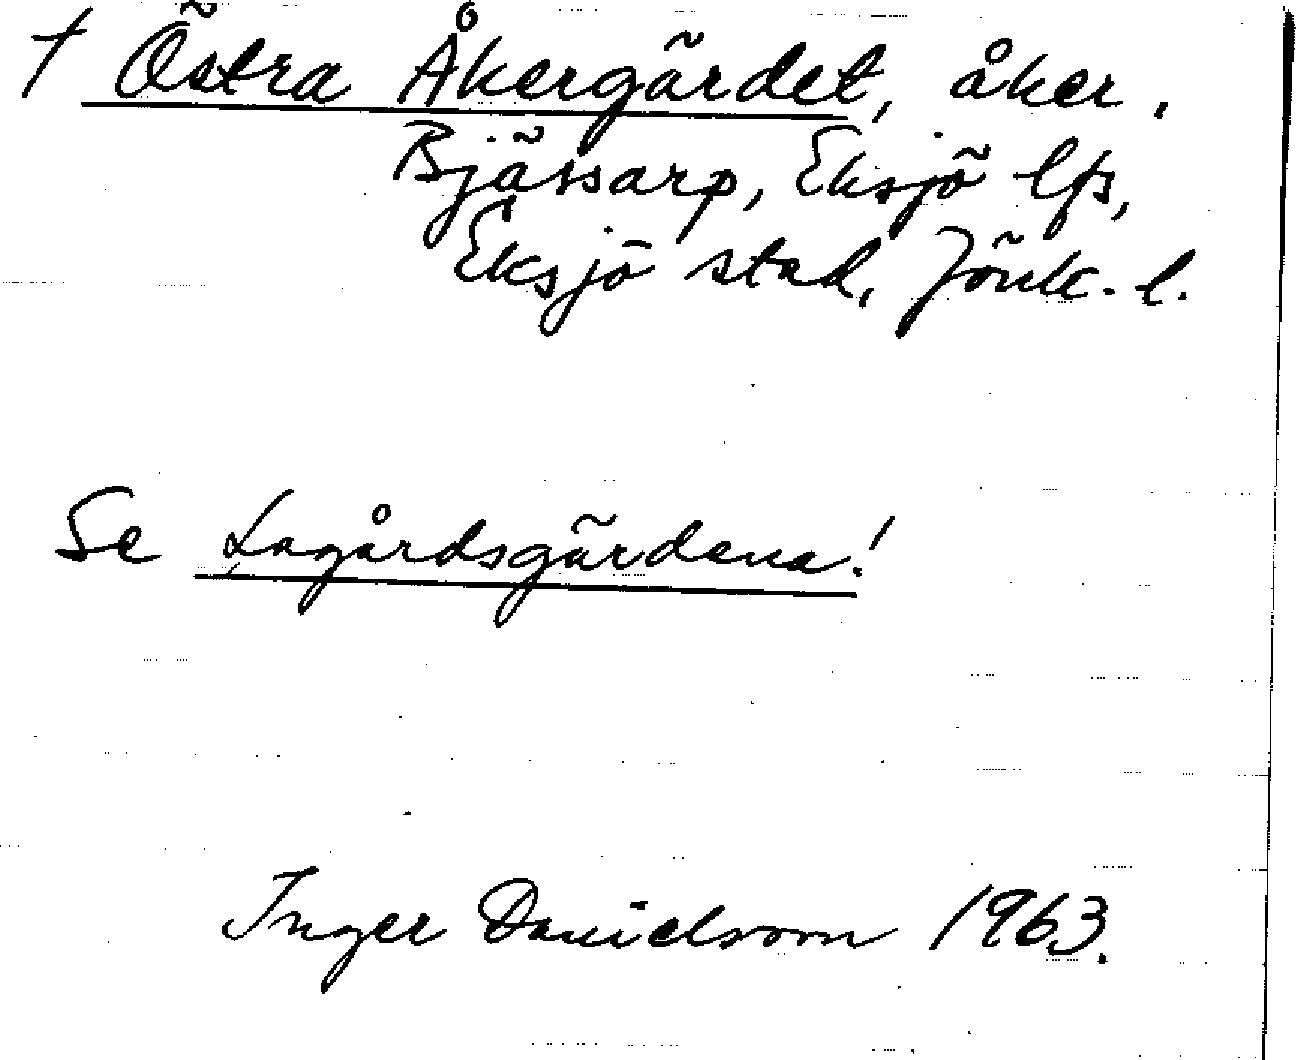 † Östra Åkergärdet, åker.
Bjässarp, Eksjö lfs,
Eksjö stad, Jönk. l.
Se Lagårdsgärdena!
Inger Danielsson 1963.